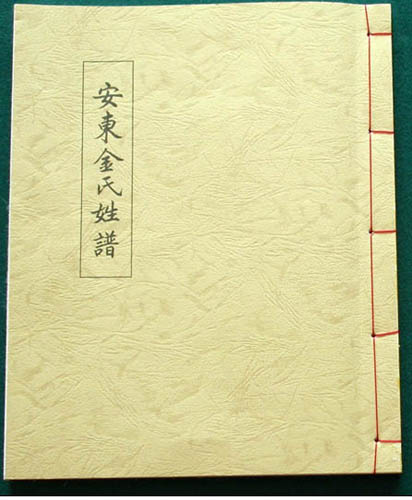 安東金氏姓譜